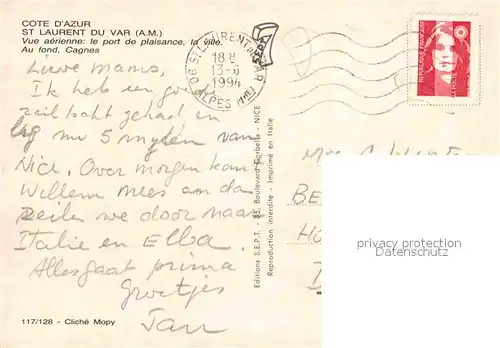 COTE D'AZUR
ST LAURENT DU VAR (A.M.)
Vue aérienne: le port de plaisance, la ville.
Au fond, Cagnes
Lieve Mams,
Ik heb een goede
zeiltocht gehad en
lig nu 5 mylen van
Nice. Over morgen kan
Willem mees en dan
zeilen we door naar
Italie en Elba.
Alles gaat prima
Groetjes
Jan
117/128 - Cliché Mopy
Editions S.E.P.T. 35, Boulevard Gorbella - NICE
Reproduction interdite - Imprimé en Italie
06 ST LAURENT VAR
18 H
13-6
1994
ALPES MMES
SEPT
REPUBLIQUE FRANÇAISE
LA POSTE
Mrs
BE
privacy protection
Datenschutz